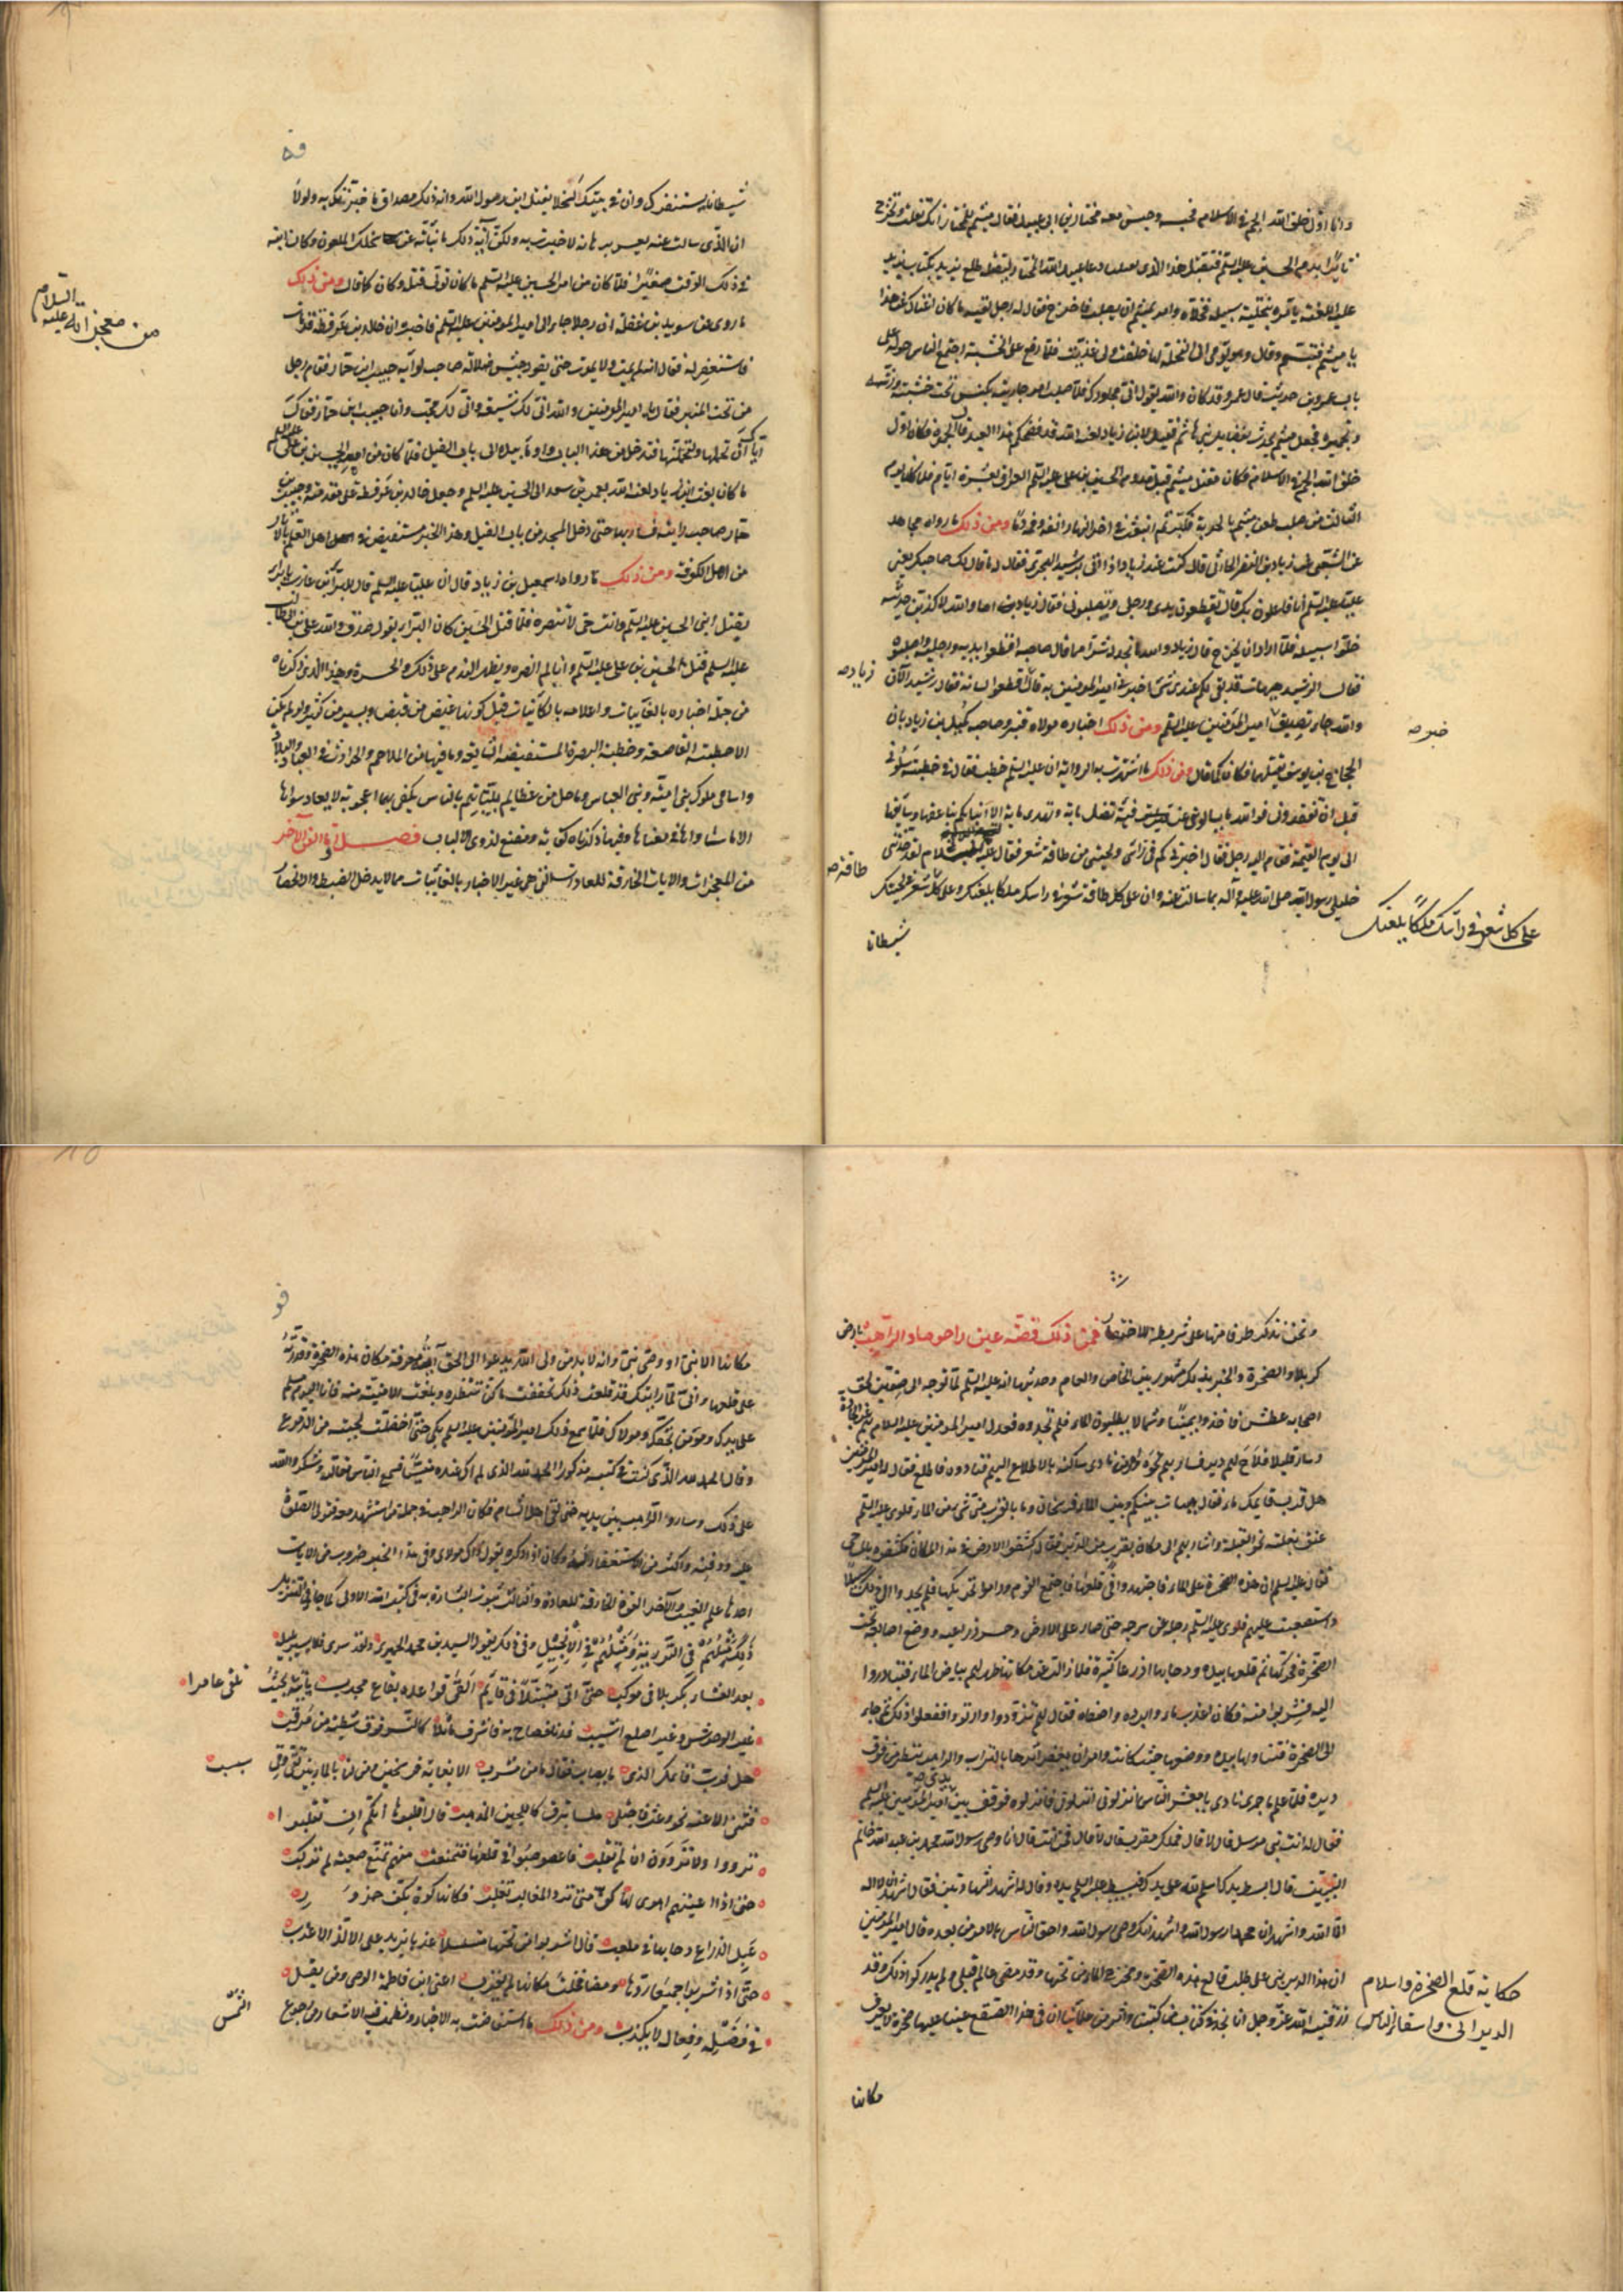 وانا اول خلق الله الجم في الاسلام فحبسه وحبس معه مختار بن ابي عبيد فقال ميثم للمختار انك تفلت وتخرج
ثائرا بدم الحسين عليه السلم فتقتل هذا الذي يقتلنا فلما دعا عبيد الله المختار ليقتله طلع بريد بكتاب يزيد
عليه اللعنة يأمره بتخلية سبيله فخلاه وامر بميثم ان يصلب فاخرج فقال له رجل لقيه ما كان اغناك عن هذا
يا ميثم فتبسم وقال وهو يومي الى النخلة لها خلقت ولي غذيت فلما رفع على الخشبة اجتمع الناس حوله على
باب عمرو بن حريث قال عمرو قد كان والله يقول اني مجاورك فلما صلب امر جاريته بكنس تحت خشبته ورشه
وتجميره فجعل ميثم يحدث بفضايل بني هاشم فقيل لابن زياد لعنه الله قد فضحكم هذا العبد قال الجموه فكان اول
خلق الله الجم في الاسلام وكان مقتل ميثم قبل قدوم الحسين بن علي عليه السلم العراق بعشرة ايام فلما كان يوم
الثالث من صلب طعن ميثم بالحربة فكبر ثم انبعث في اخر النهار انفه وفمه دما ومن ذلك ما رواه مجاهد
عن الشعبي عن زياد بن النضر الحارثي قال كنت عند زياد اذ اتى برشيد الهجري فقال له ما قال لك صاحبك يعني
عليا عليه السلم انا فاعلون بك قال تقطعون يدي ورجلي وتصلبونني فقال زياد اما والله لاكذبن حديثه
خلوا سبيله فلما اراد ان يخرج قال زياد والله ما نجد له شرا مما قال صاحبه اقطعوا يديه ورجليه واصلبوه
فقال الرشيد هيهات قد بقي لكم عندي شئ اخبرني امير المؤمنين به قال اقطعوا لسانه فقال رشيد الآن
زياد صه
والله جاء تصديق امير المؤمنين عليه السلم ومن ذلك اخباره مولاه قنبر وصاحبه كميل بن زياد بان
خبر صه
الحجاج بن يوسف يقتلهما فكان كما قال ومن ذلك ما اشتهرت به الرواية ان عليه السلم خطب فقال في خطبته سلوني
قبل ان تفقدوني فوالله ما يسالوني عن فئة تضل ماية وتهدي ماية الا انباتكم بناعقها وسايقها
الى يوم القيمة فقام اليه رجل فقال اخبرني كم في راسي ولحيتي من طاقة شعر فقال عليه السلام لقد حدثني
طاقة صه
خليلي رسول الله صلى الله عليه وآله بما سالت عنه وان على كل طاقة شعر في راسك ملكا يلعنك وعلى كل شعر في لحيتك
على كل شعر في رأسك ملكا يلعنك
شيطانا
قه
شيطانا يستفزك وان في بيتك لسخلا يقتل ابن رسول الله وآية ذلك مصداق ما خبرتك به ولولا
ان الذي سالت عنه يعسر برهانه لاخبرتك به ولكن آية ذلك ما نبأته عن سخلك الملعون وكان ابنه
في ذلك الوقت صغيرا فلما كان من امر الحسين عليه السلم ما كان تولى قتله وكان كما قال ومن ذلك
ما روي عن سويد بن غفلة ان رجلا جاء الى امير المؤمنين عليه السلم فاخبره ان خالد بن عرفطة قد مات
فاستغفر له فقال انه لم يمت ولا يموت حتى يقود جيش ضلالة صاحب لوائه حبيب ابن حمار فقام رجل
من تحت المنبر فقال يا امير المؤمنين والله اني لك شيعة واني لك محب وانا حبيب ابن حمار فقال
اياك ان تحملها ولتحملنها فتدخل من هذا الباب واومأ بيده الى باب الفيل فلما كان من امر الحسين بن علي عليه السلم
ما كان بعث ابن زياد لعنه الله بعمر بن سعد الى الحسين عليه السلم وجعل خالد بن عرفطة على مقدمته وحبيب بن
حمار صاحب رايته فسار بها حتى دخل المسجد من باب الفيل وهذا الخبر مستفيض في اهل العلم بالآثار
من اهل الكوفة ومن ذلك ما رواه اسمعيل بن زياد قال ان عليا عليه السلم قال للبراء بن عازب يا براء
يقتل ابني الحسين عليه السلم وانت حي لا تنصره فلما قتل الحسين كان البراء يقول صدق والله علي بن ابي طالب
عليه السلم قتل الحسين بن علي عليه السلم وانا لم انصره ويظهر الندم على ذلك والحسرة وهذا الذي ذكرناه
من جملة اخباره بالغايبات واعلامه بالكاينات قبل كونها غيض من فيض ويسير من كثير ولو لم يكن
الا خطبته القاصعة وخطبة البصرة المستفيضة الشايعة وما فيهما من الملاحم والحوادث في العباد والبلاد
واسامي ملوك بني امية وبني العباس وما حل من عظايم بلياتهم بالناس يكفي بها اعجوبة لا يعادلها سواها
الا ما ساواها في معناها وفيما ذكرناه كفاية ومقنع لذوي الالباب فصل واما الفن الآخر
من المعجزات والايات الخارقة للعادات التي هي غير الاخبار بالغايبات مما لا يدخل الضبط والانحصار
من معجزاته عليه السلام
ونحن نذكر طرفا منها على شريطة الاختصار فمن ذلك قصة عين راحوما والراهب بارض
كربلا والصخرة والخبر بذلك مشهور بين الخاص والعام وحديثها انه عليه السلم لما توجه الى صفين لحق
اصحابه عطش فاخذوا يمينا وشمالا يطلبون الماء فلم يجدوه فعدل امير المؤمنين عليه السلام بهم عن الجادة
وسار قليلا فلاح لهم دير فسار بهم نحوه وامر من نادى ساكنه بالاطلاع اليهم فنادوه فاطلع فقال له امير المؤمنين
هل قرب قايمك ماء فقال هيهات بينكم وبين الماء فرسخان وما بالقرب مني شئ من الماء فلوى عليه السلم
عنق بغلته نحو القبلة واشار بهم الى مكان بقرب من الدير فقال اكشفوا الارض في هذا المكان فكشفوه بالمساحي
فقال عليه السلم ان هذه الصخرة على الماء فاجتهدوا في قلعها فاجتمع القوم وراموا تحريكها فلم يجدوا الى ذلك سبيلا
واستصعبت عليهم فلوى عليه السلم رجله عن سرجه حتى صار على الارض وحسر ذراعيه ووضع اصابعه تحت
الصخرة فحركها ثم قلعها بيده ودحا بها اذرعا كثيرة فلما زالت عن مكانها ظهر لهم بياض الماء فتبادروا
اليه فشربوا منه فكان اعذب ماء وابرده واصفاه فقال لهم تزودوا وارتووا ففعلوا ذلك ثم جاء
الى الصخرة فتناولها بيده ووضعها حيث كانت وامر ان يعفى اثرها بالتراب والراهب ينظر من فوق
ديره فلما علم ما جرى نادى يا معشر الناس انزلوني انزلوني فانزلوه فوقف بين يدي امير المؤمنين عليه السلم
فقال له انت نبي مرسل قال لا قال فملك مقرب قال لا قال فمن انت قال انا وصي رسول الله محمد بن عبد الله خاتم
النبيين قال ابسط يدك اسلم لله على يدك فبسط عليه السلم يده وقال له اشهد الشهادتين فقال اشهد ان لا اله
الا الله واشهد ان محمدا رسول الله واشهد انك وصي رسول الله واحق الناس بالامر من بعده قال يا امير المؤمنين
ان هذا الدير بني على طلب قالع هذه الصخرة ومخرج الماء من تحتها وقد مضى عالم قبلي ولم يدركوا ذلك وقد
رزقنيه الله عز وجل انا نجد في كتاب من كتبنا واثر من علمائنا ان في هذا الصقع عينا عليها صخرة لا يعرف
حكاية قلع الصخرة واسلام
الديراني واسقاء الناس
مكانها
قو
مكانها الا نبي او وصي نبي وانه لا بد من ولي الله يدعوا الى الحق آيته معرفة مكان هذه الصخرة وقدرته
على قلعها واني لما رايتك قد قلعت ذلك تحققت ما كنا ننتظره وبلغت الامنية منه فانا اليوم مسلم
على يدك ومؤمن بحقك ومولاك فلما سمع ذلك امير المؤمنين عليه السلم بكى حتى اخضلت لحيته من الدموع
وقال الحمد لله الذي كنت في كتبه مذكورا الحمد لله الذي لم اكن عنده منسيا فسمع الناس مقالته وشكروا الله
على ذلك وساروا والراهب بين يديه حتى لقي اهل الشام فكان الراهب في جملة من استشهد معه فتولى الصلوة
عليه ودفنه واكثر من الاستغفار له وكان اذا ذكره يقول ذاك مولاي وفي هذا الخبر ضروب من الآيات
احدها علم الغيب والآخر القوة الخارقة للعادة والثالث ثبوت البشارة به في كتب الله الاولى كما جاء في التنزيل
ذلك مثلهم في التورية ومثلهم في الانجيل وفي ذلك يقول السيد بن محمد الحميري ولقد سرى فيما يسير بليلة
بعد العشاء بكربلا في موكب حتى اتى متبتلا في قايم القى قواعده بقاع مجدب يأتيه بحيث
تلقى عامرا
غير الوحوش وغير اصلع اشيب فدنا فصاح به فاشرف ماثلا كالنسر فوق شظية من مرقب
هل قرب قايمك الذي ما يصاب فقال ما من مشرب الا بغاية فرسخين ومن لنا بالماء بين نقي وقي
سبسب
فثنى الاعنة نحو وعث فاجتلى ملساء تبرق كاللجين المذهب قال اقلبوها انكم ان تقلبوا
ترووا ولا تروون ان لم تقلب فاعصوصبوا في قلعها فتمنعت منهم تمنع صعبة لم تركب
حتى اذا اعيتهم اهوى لها كف متى ترد المغالب تغلب فكانها كرة بكف حزور
عبل الذراع دحا بها في ملعب قال اشربوا من تحتها متسلسلا عذبا يزيد على الالذ الاعذب
حتى اذا شربوا جميعا ردها ومضا فخلت مكانها لم يقرب اعني ابن فاطمة الوصي ومن يقل
في فضله وفعاله لا يكذب ومن ذلك ما استفاضت به الاخبار ونظمت فيه الاشعار من رجوع
الشمس